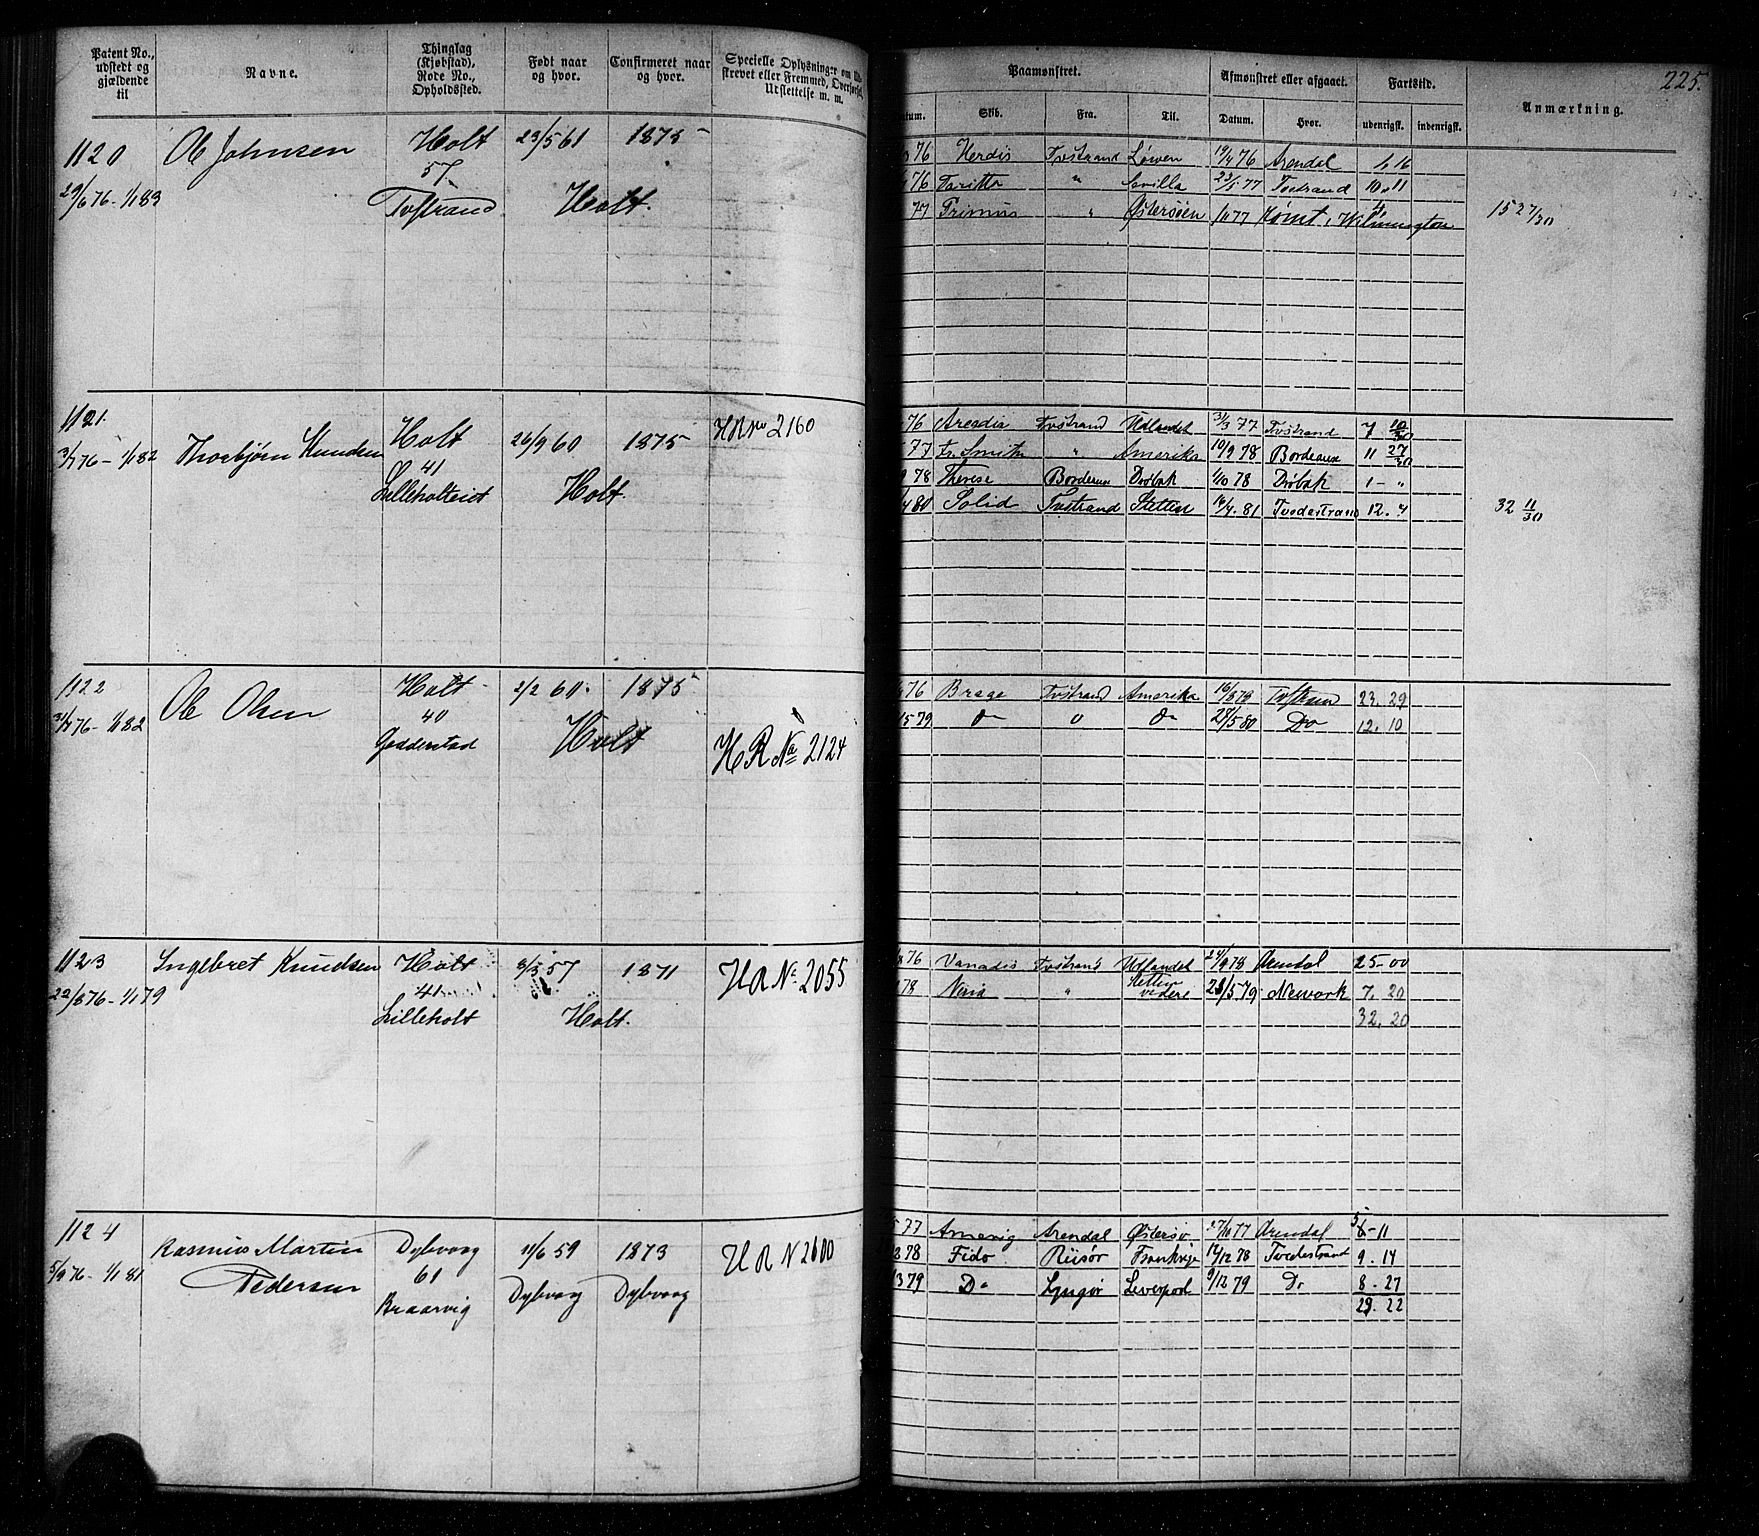 Patent No., udstedt og gjældende til
Navne.
Thinglag (Kjøbstad), Rode No., Opholdssted.
Født naar og hvor.
Confirmeret naar og hvor.
Specielle Oplysninger om
strevet eller Fremmed, Overført,
Udslettelse m. m.
Paamønstret.
Afmønstret eller afgaaet.
Fartstid.
Anmærkning.
225.
Skib.
Fra.
Til.
Datum.
Hvor.
udenrigsk.
indenrigsk.
1120 Ole Johnsen Holt 23/5 61 1875
29/6 76 - 1/1 83 57
Tvstrand Holt.
76 Herdis Tvstrand Løwen 19/4 76 Arendal 1,16
76 Taritta " Sevilla 23/5 77 Tvstrand 10,11
77 Primus " Østersöen 1/10 77 Rømt i Wilmington 4
15 27/30
1121. Thorbjørn Knudsen Holt 26/9 60 1875 HR No 2160
3/7 76 - 1/1 82 41
Lilleholteiet Holt.
76 Arcadia Tvstrand Udlandet 31/3 77 Tvstrand 7 10/30
77 Fr. Smith " Amerika 10/9 78 Bordeaux 11 27/30
78 Therese Bordeaux Drøbak 1/10 78 Drøbak 1 - "
80 Solid Tvstrand Stettin 16/4 81 Tvedestrand 12. 4
32 11/30
1122 Ole Olsen Holt 2/2 60. 1875
31/7 76 - 1/1 82 40
Goderstad Holt HR No 2124
76 Brage Tvstrand Amerika 16/5 79 23. 29
5 79 Do " Do 27/5 80 Do 12. 10
1123 Ingebret Knudsen Holt 8/3 57 1871 HR No 2055
22/8 76 - 1/1 79 41
Lilleholt Holt.
76 Vanadis Tvstrand Udlandet 24/9 78 Arendal 25-00
78 " Stettin videre 28/5 79 Newyork 7. 20
32. 20
1124 Rasmus Martin Pedersen Dybvaag 11/6 59 1873 HR N 2100
5/9 76 - 1/1 81 61
Braarvig Dybvaag Dybvaag
77 Amevig Arendal Østersø 27/10 77 Arendal 5-11
78 Fido Riisør Frankrige 14/12 78 Tvedestrand 9. 14
3 79 Do Lyngør Leverpool 9/12 79 Do 8. 27
23. 22